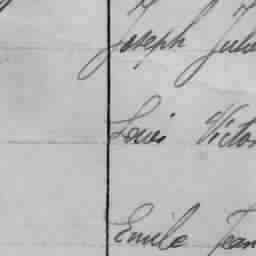 Joseph
Louis Victor
Emile Jean